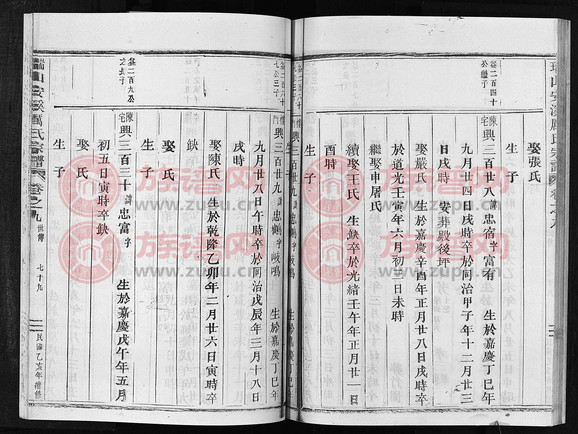 娶張氏
生子
陳宅興三百廿八諱忠宿字富有 生於嘉慶丁巳年
九月廿四日戌時卒於同治甲子年十二月廿三
日戌時 安葬殿後坪
娶嚴氏 生於嘉慶辛酉年正月廿八日戌時卒
於道光壬寅年六月初三日未時
繼娶申屠氏
續娶王氏 生缺卒於光緒壬午年正月廿一日
酉時
生子
興三百廿九諱忠 字岐鳴 生於嘉慶丁巳年
九月廿八日午時卒於同治戊辰年三月十八日
戌時
娶陳氏 生於乾隆乙卯年二月廿六日寅時卒
缺
娶氏
生子
陳宅興三百三十諱忠富字 生於嘉慶戊午年五月
初五日寅時卒缺
娶氏
生子
七十九
民國乙亥年續修
族譜网
www.zupu.cn